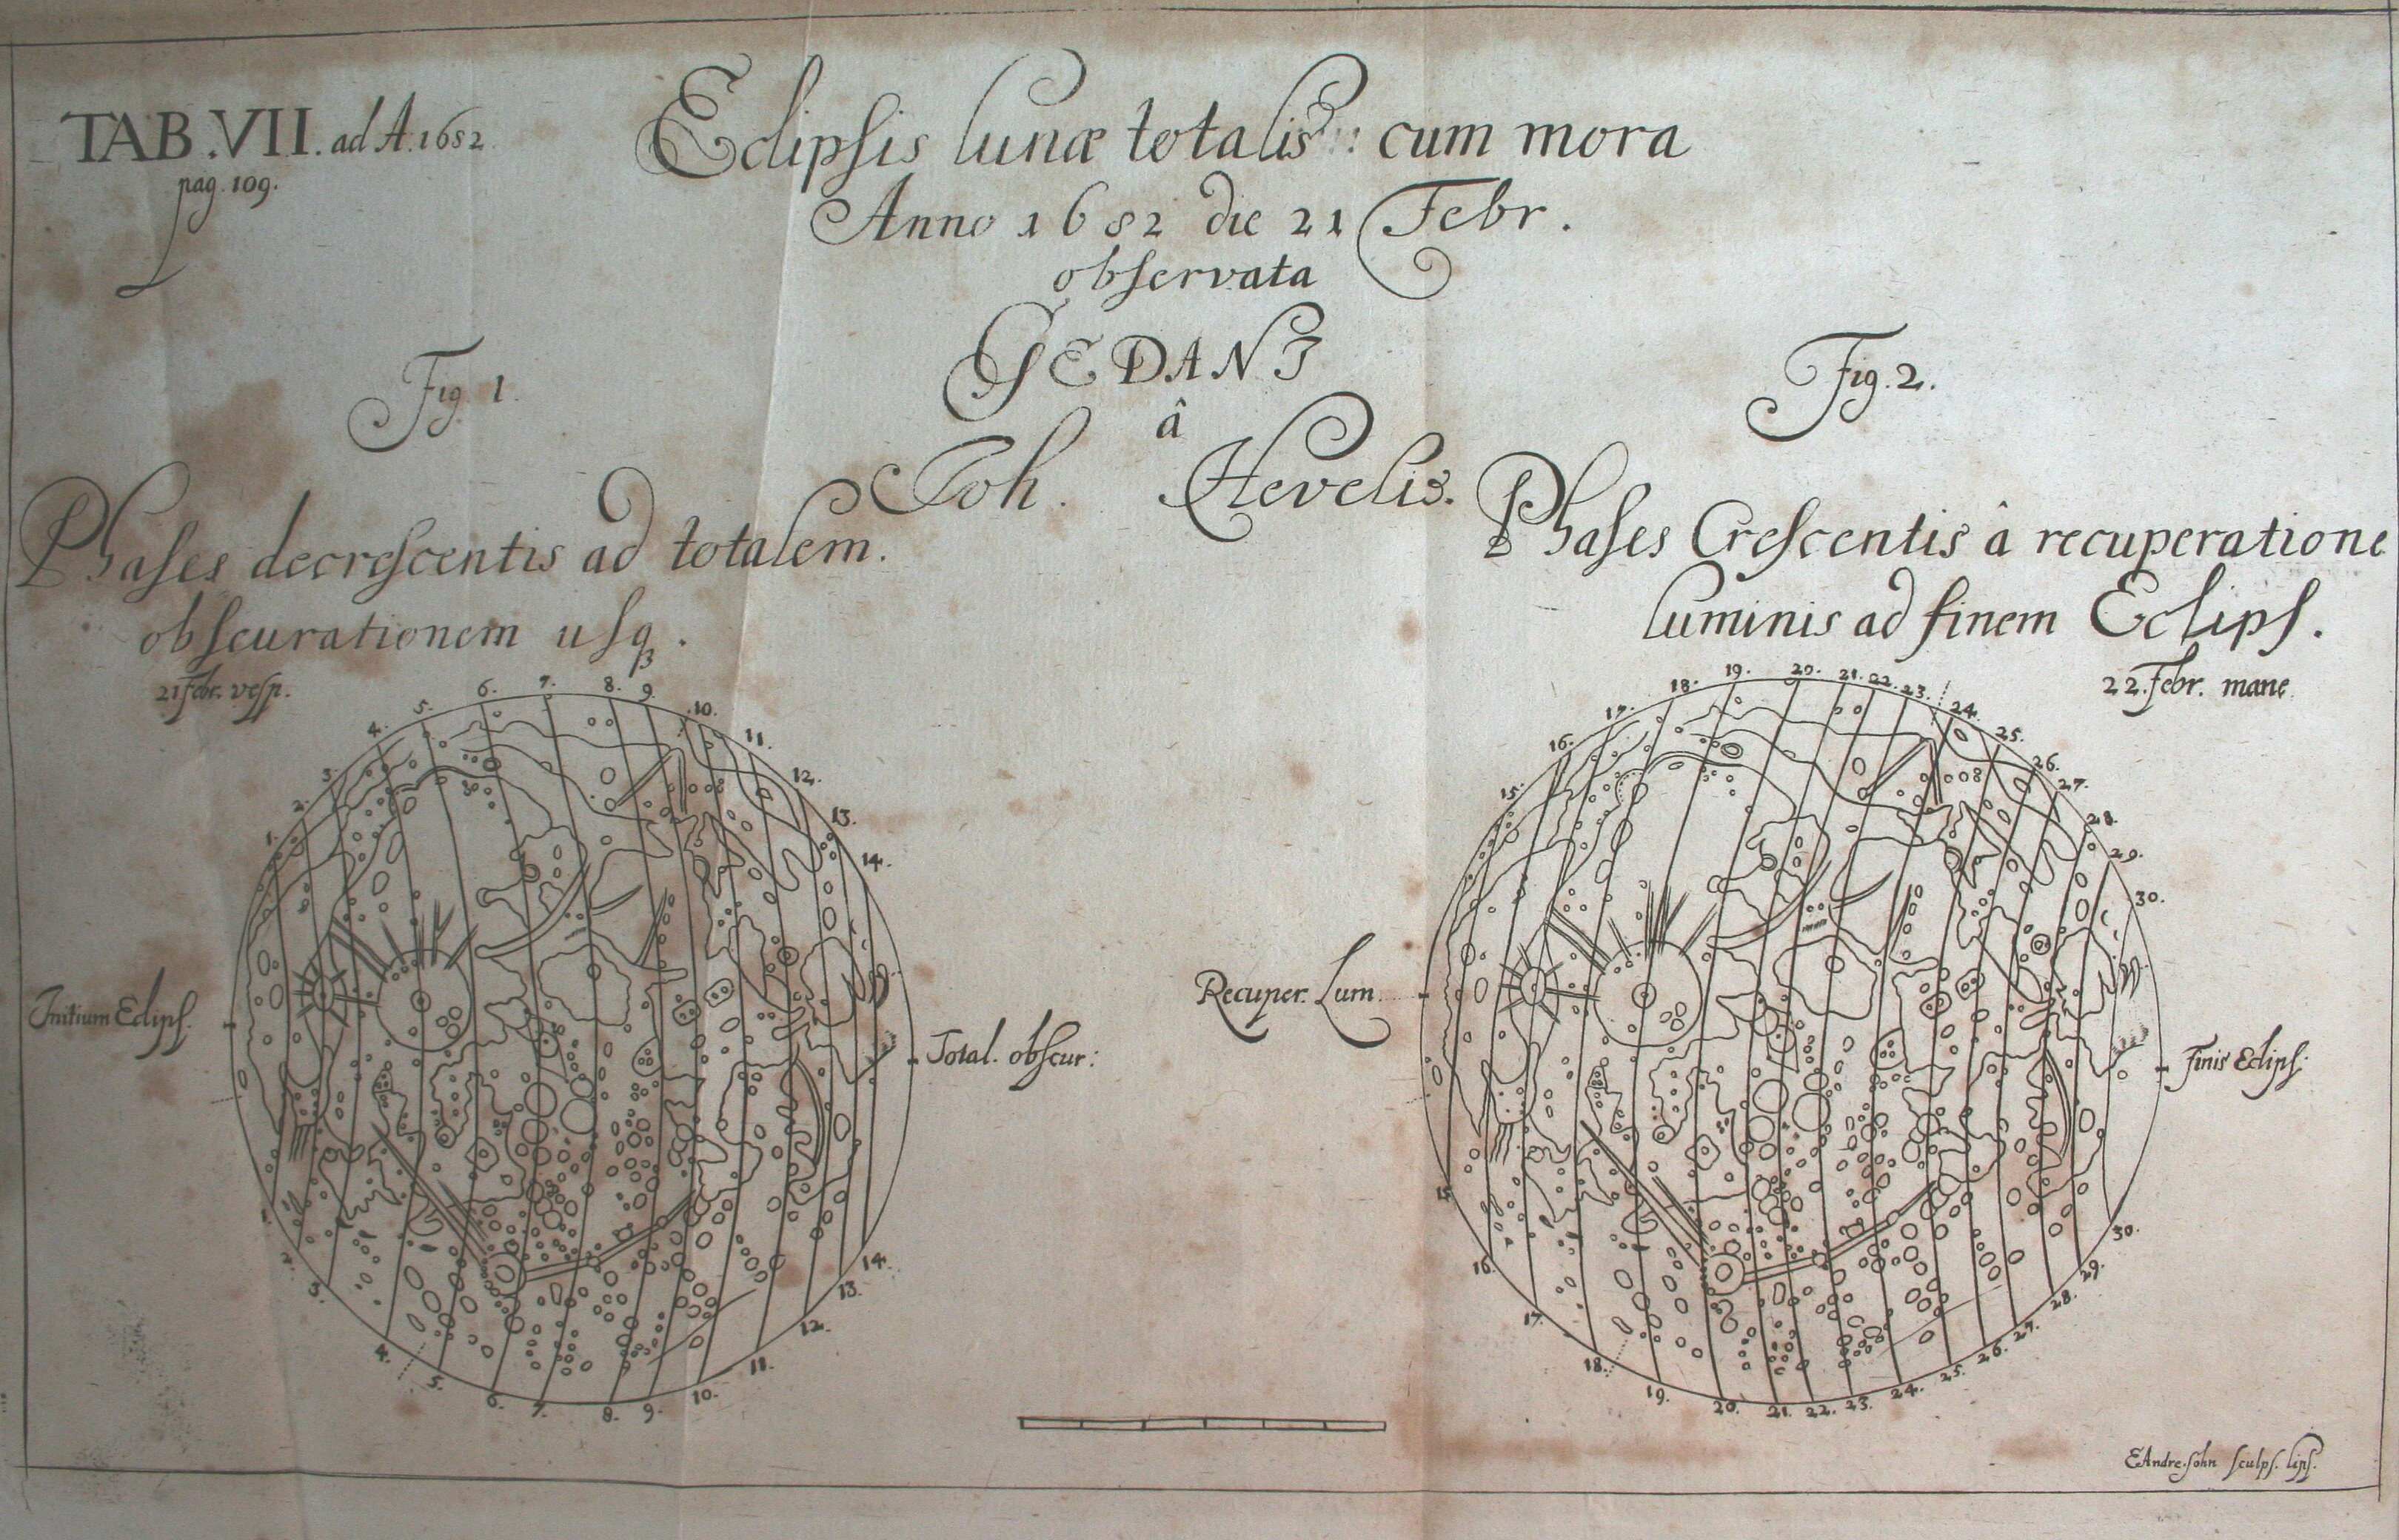 TAB. VII. ad A. 1682
pag. 109.
Eclipsis lunæ totalis :: cum mora
Anno 1682 die 21 Febr.
observata
GEDANI
â
Joh. Hevelis.
Fig. 1.
Phases decrescentis ad totalem.
obscurationem usq.
21 Febr. vesp.
Fig. 2.
Phases Crescentis â recuperatione
luminis ad finem Eclips.
22. Febr. mane
1. 2. 3. 4. 5. 6. 7. 8. 9. 10. 11. 12. 13. 14.
Initium Eclips.
Total. obscur:
2. 3. 4. 5. 6. 7. 8. 9. 10. 11. 12. 13. 14.
15. 16. 17. 18. 19. 20. 21. 22. 23. 24. 25. 26. 27. 28. 29. 30.
Recuper. Lum.
Finis Eclips.
15. 16. 17. 18. 19. 20. 21. 22. 23. 24. 25. 26. 27. 28. 29. 30.
E Andresohn sculps. lips.